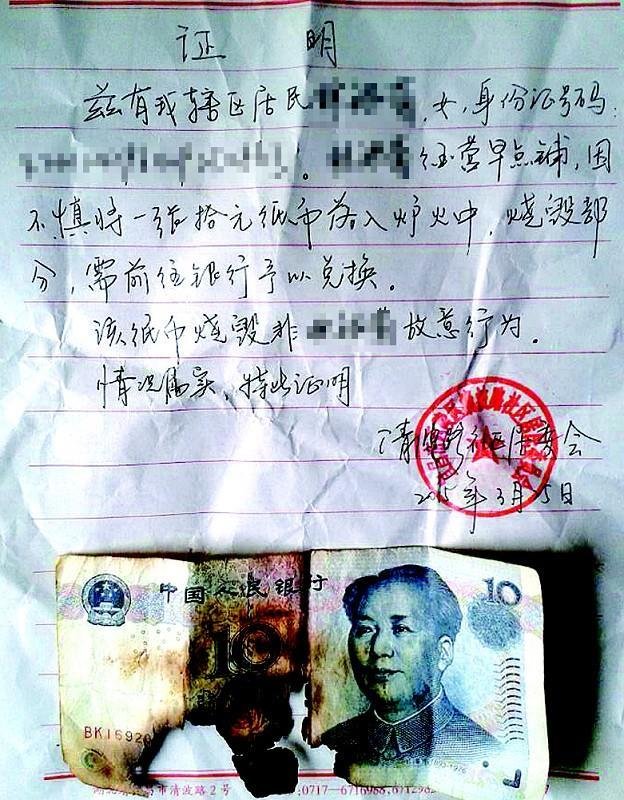 证 明
兹有我辖区居民 ，女，身份证号码：
。 经营早点铺，因
不慎将一张拾元纸币落入炉火中，烧毁部
分，需前往银行予以兑换。
该纸币烧毁非 故意行为。
情况属实，特此证明
清波路社区居委会
2015年3月5日
中国人民银行
10
10
BK16920
1893-1976
市清波路2号
:0717—6716988,